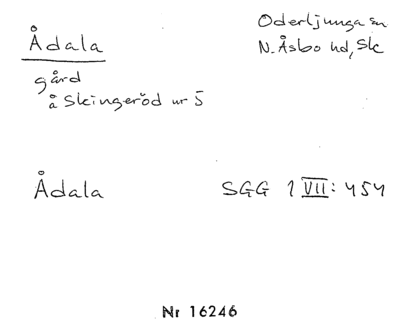 Ådala
Oderljunga sn
N. Åsbo hd, Sk
gård
å Skingeröd nr 5
Ådala
SGG 1 VII: 454
Nr 16246